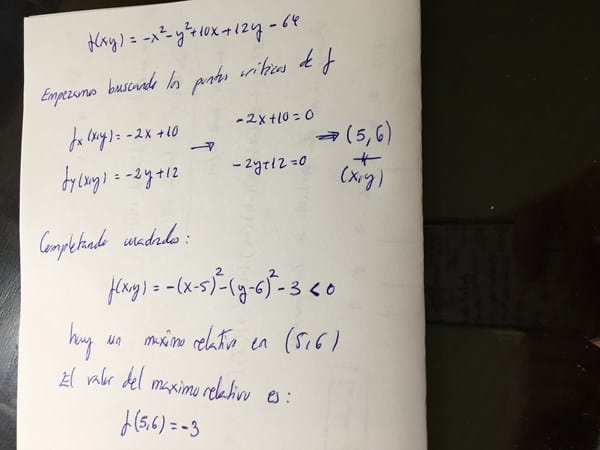 f(x,y) = -x²-y²+10x+12y-64
Empezamos buscando los puntos criticos de f
fx(x,y) = -2x+10 → -2x+10=0 ⇒ (5,6)
fy(x,y) = -2y+12 -2y+12=0 (x,y)
Completando cuadrados:
f(x,y) = -(x-5)²-(y-6)²-3 < 0
hay un maximo relativo en (5,6)
El valor del maximo relativo es:
f(5,6) = -3